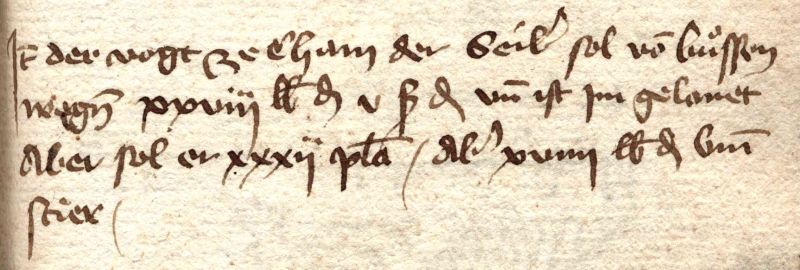 It der vogt ze Cham der Seiler sol vō bůssen
wegn̄ xxviii lb d v ß d vn̄ ist im gelauet
Aber sol er xxxii pla / Alr xviiii lb d vm
stier /